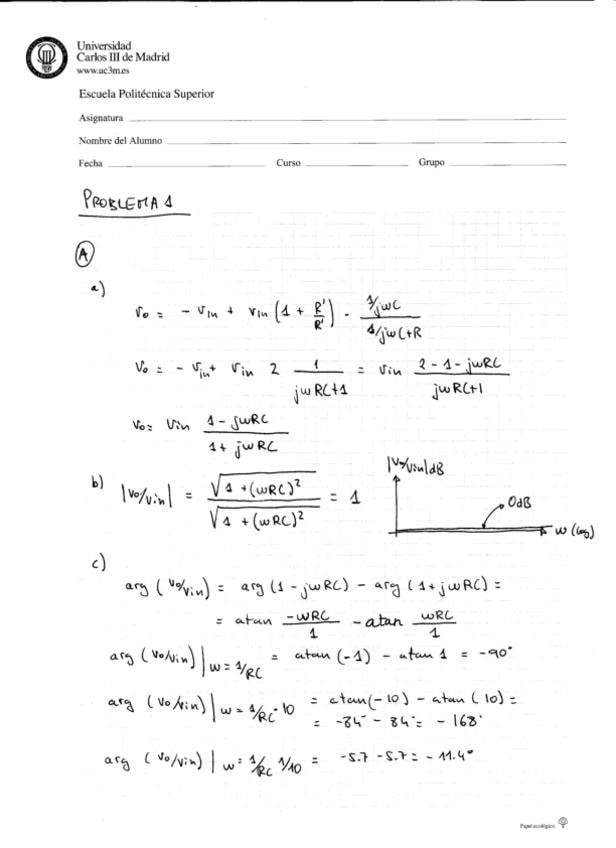 Universidad
Carlos III de Madrid
www.uc3m.es
Escuela Politécnica Superior
Asignatura
Nombre del Alumno
Fecha Curso Grupo
PROBLEMA 1
A
a)
Vo = - Vin + Vin (1 + R'/R') · (1/jwC)/(1/jwC+R)
Vo = - Vin + Vin 2 1/(jwRC+1) = Vin (2 - 1 - jwRC)/(jwRC+1)
Vo = Vin (1 - jwRC)/(1 + jwRC)
b) |Vo/Vin| = √(1 + (wRC)²)/√(1 + (wRC)²) = 1
|Vo/Vin|dB
0dB
w (log)
c)
arg (Vo/Vin) = arg (1 - jwRC) - arg (1 + jwRC) =
= atan -wRC/1 - atan wRC/1
arg (Vo/Vin) | w = 1/RC = atan (-1) - atan 1 = -90°
arg (Vo/Vin) | w = 1/RC · 10 = atan(-10) - atan (10) =
= -84° - 84° = - 168°
arg (Vo/Vin) | w = 1/RC 1/10 = -5.7 - 5.7 = - 11.4°
Papel ecológico